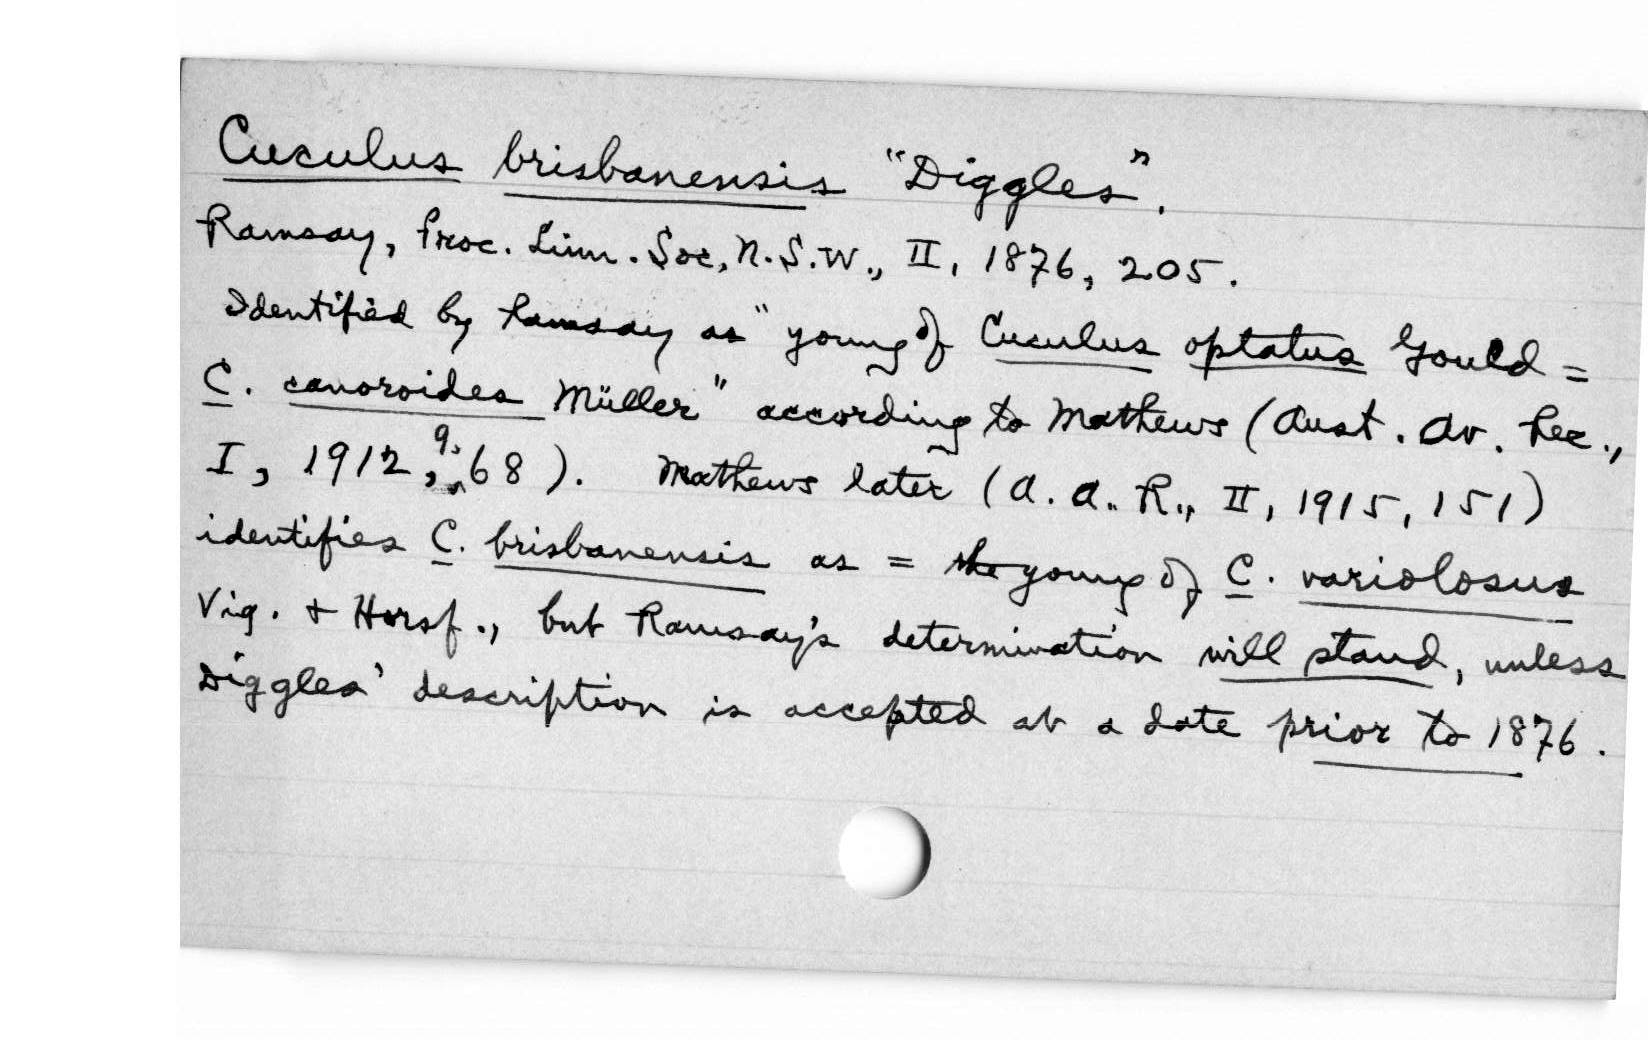 Cuculus brisbanensis "Diggles".
Ramsay, Proc. Linn. Soc. N.S.W., II, 1876, 205.
Identified by Ramsay as "young of Cuculus optatus Gould =
C. canoroides Müller" according to Mathews (Aust. Av. Rec.,
I, 1912, q. 68). Mathews later (A. A. R., II, 1915, 151)
identifies C. brisbanensis as = the young of C. variolosus
Vig. + Horsf., but Ramsay's determination will stand, unless
Diggles' description is accepted at a date prior to 1876.